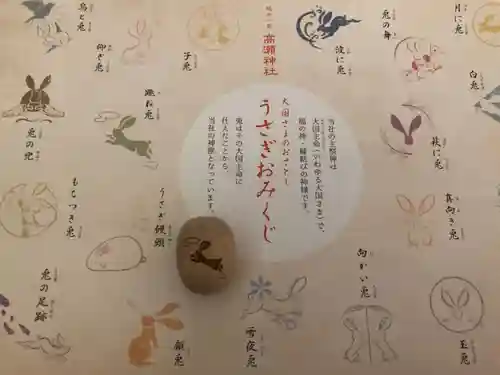 越中一宮
高瀬神社
大国さまのおさとし
うさぎおみくじ
当社の主祭神は
大国主命(いわゆる大国さま)で、
福の神・縁結びの神様です。
兎はその大国主命に
仕えたことから、
当社の神使となっています。
月に兎
兎の舞
波に兎
子兎
仰ぎ兎
烏と兎
白兎
萩に兎
跳ね兎
兎の兜
真向き兎
向かい兎
うさぎ饅頭
もちつき兎
玉兎
雪夜兎
願兎
兎の足跡